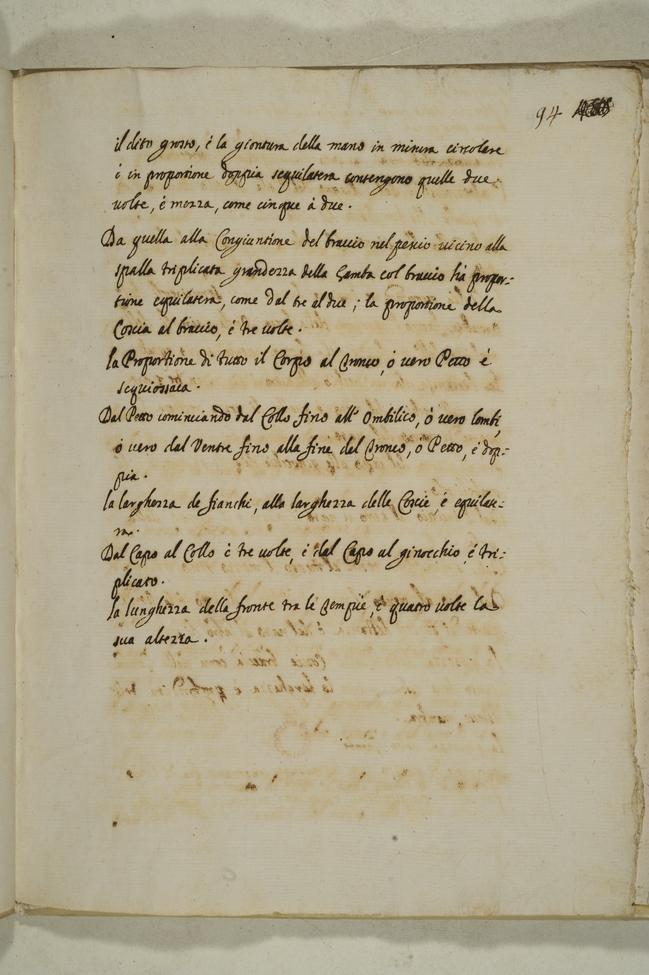 94
il dito grosso, é la giontura della mano in misura circolare
é in proportione doppia sequilatera contengono quelle due
volte, é mezza, come cinque à due.
Da quella alla Congiuntione del braccio nel vicino alla
spalla triplicata grandezza della Gamba col braccio hà propor=
tione equilatera, come dal tre al due; la proportione della
Coscia al braccio, é tre volte.
la Proportione di tutto il Corpo al Tronco, ò vero Petto é
Dal Petto cominciando dal Collo fino all' Ombilico, ò vero lombi,
ò vero dal Ventre fino alla fine del Tronco, ò Petto, é dop=
pia.
la larghezza de fianchi, alla larghezza delle Coscie, é equilate=
ra.
Dal Capo al Collo é tre volte, é dal Capo al ginocchio, é tri=
plicato.
la lunghezza della fronte tra le Tempie, é quatro volte la
sua altezza.